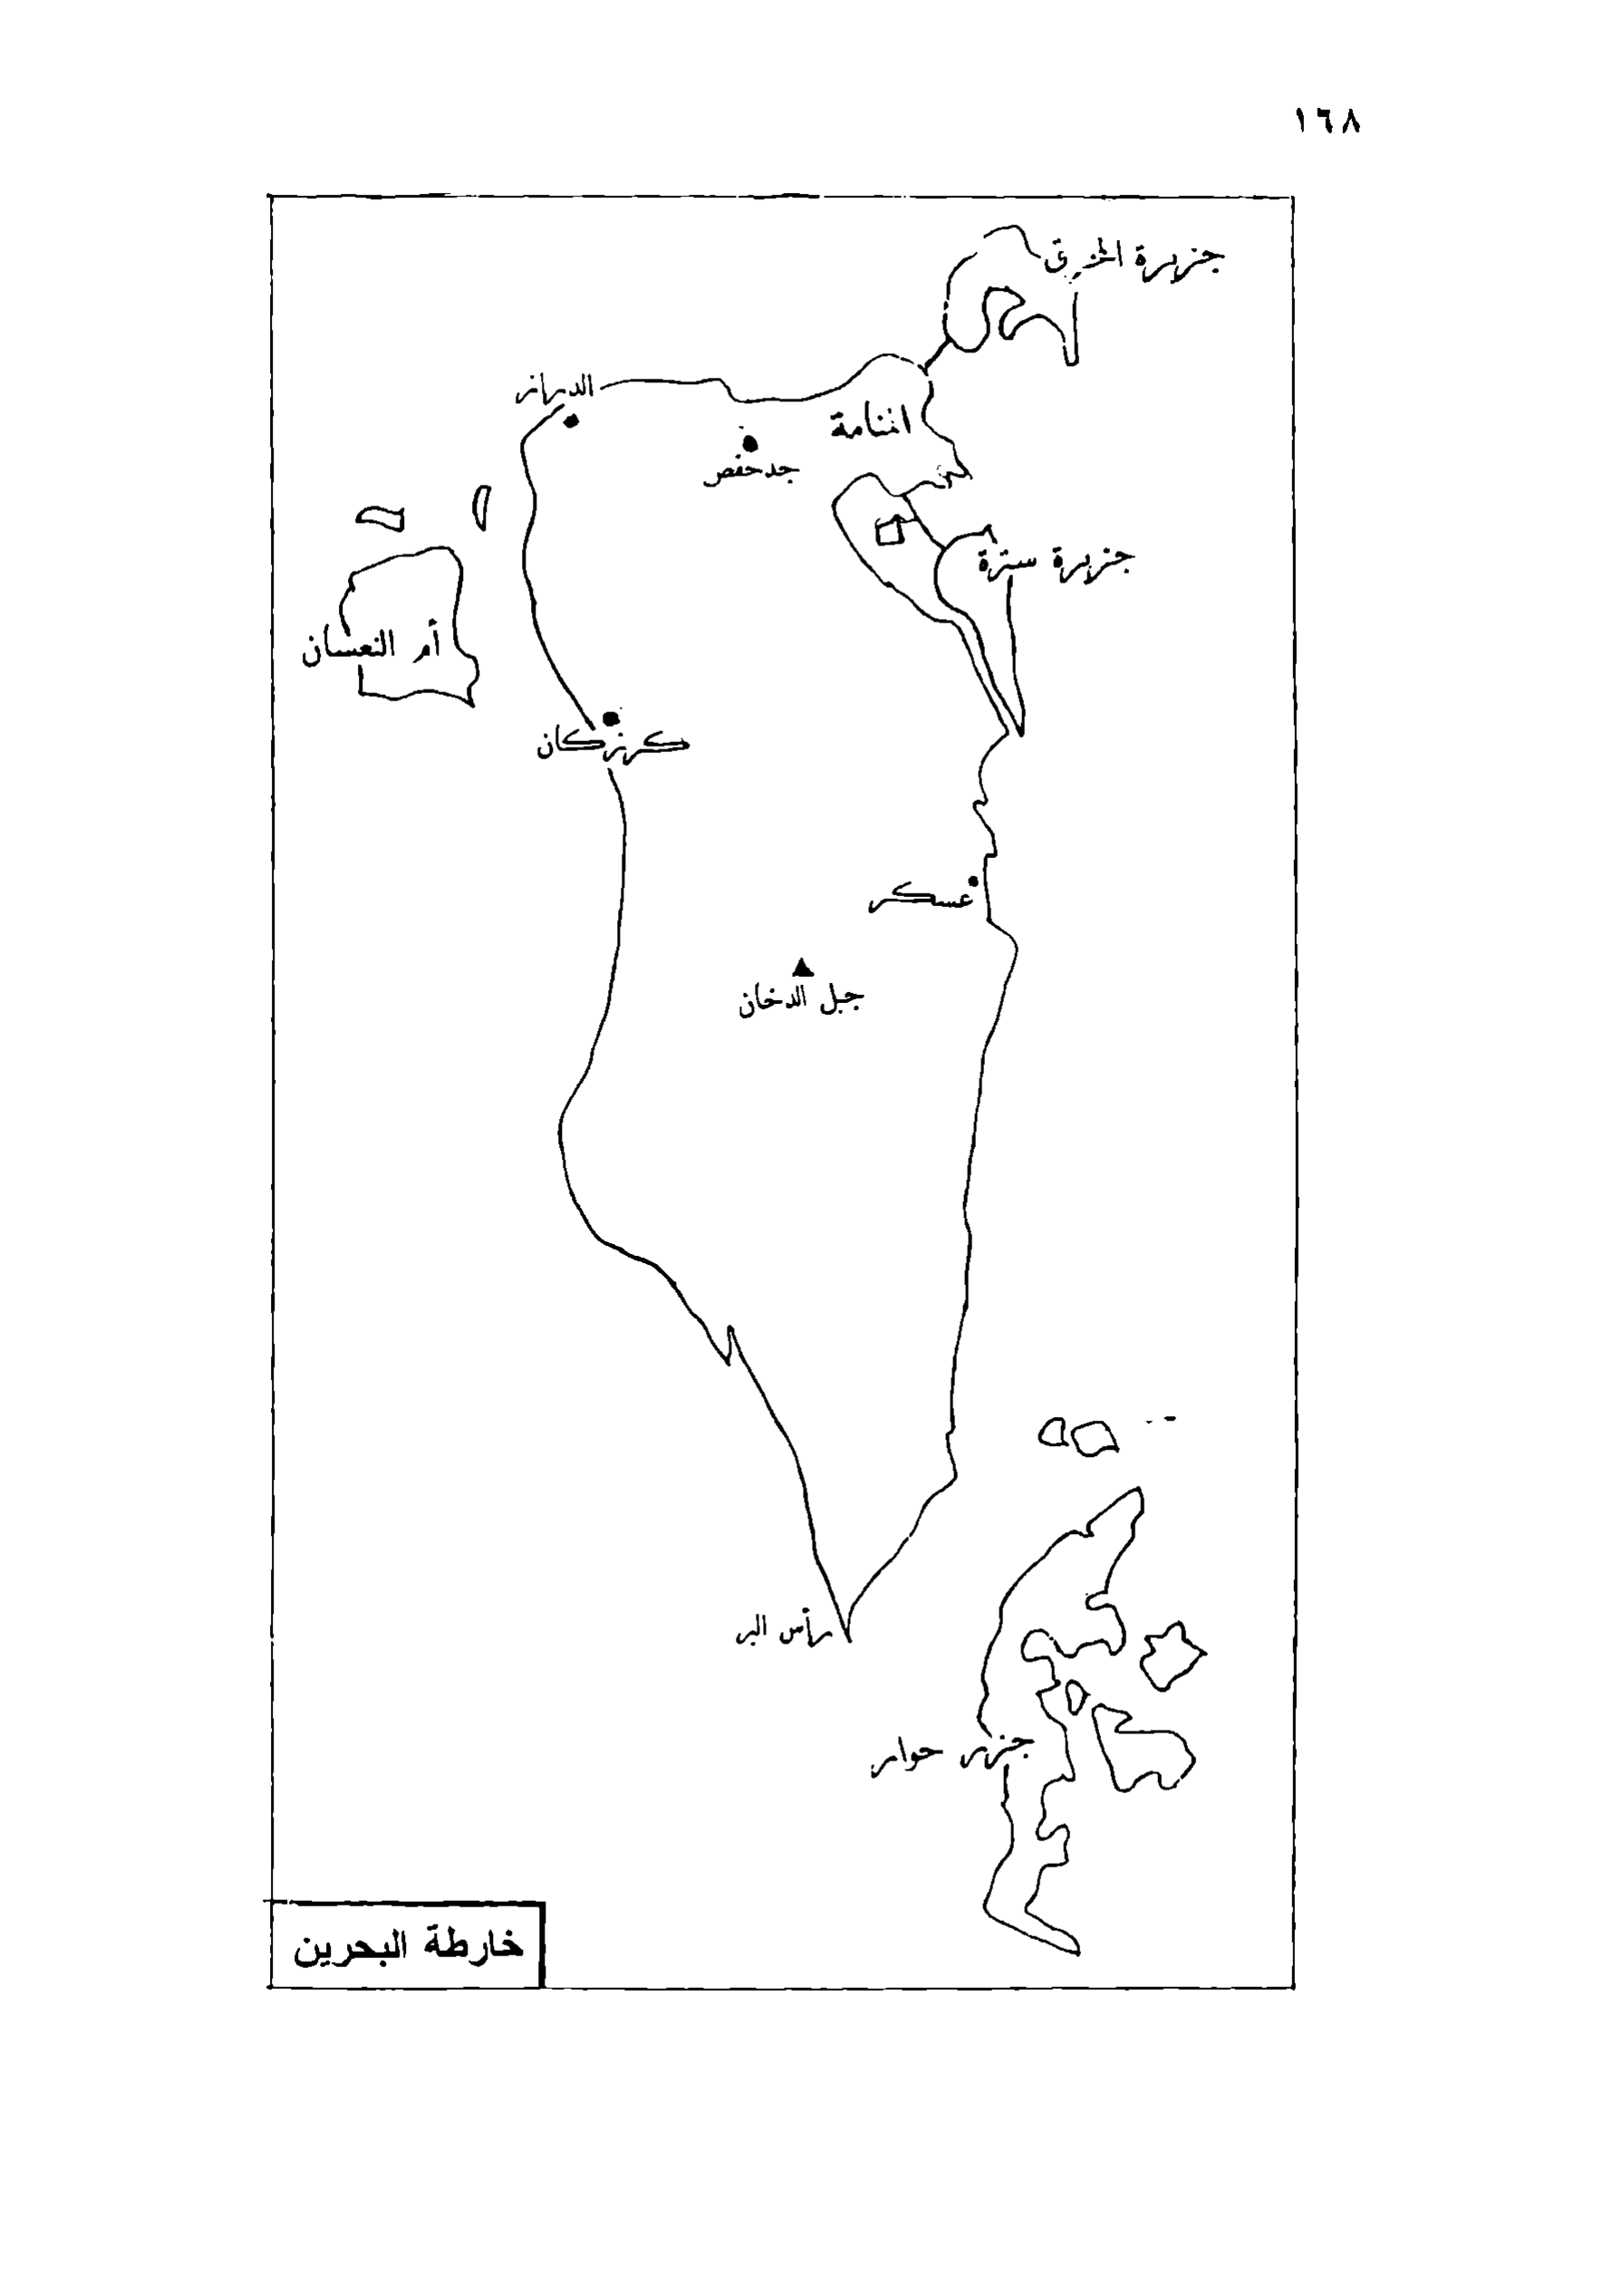 ١٦٨
جزيرة
الدراز
المنامة
جدحفص
جزيرة سترة
أم النعسان
كرزكان
عسكر
جبل الدخان
رأس البر
جزر حوار
خارطة البحرين